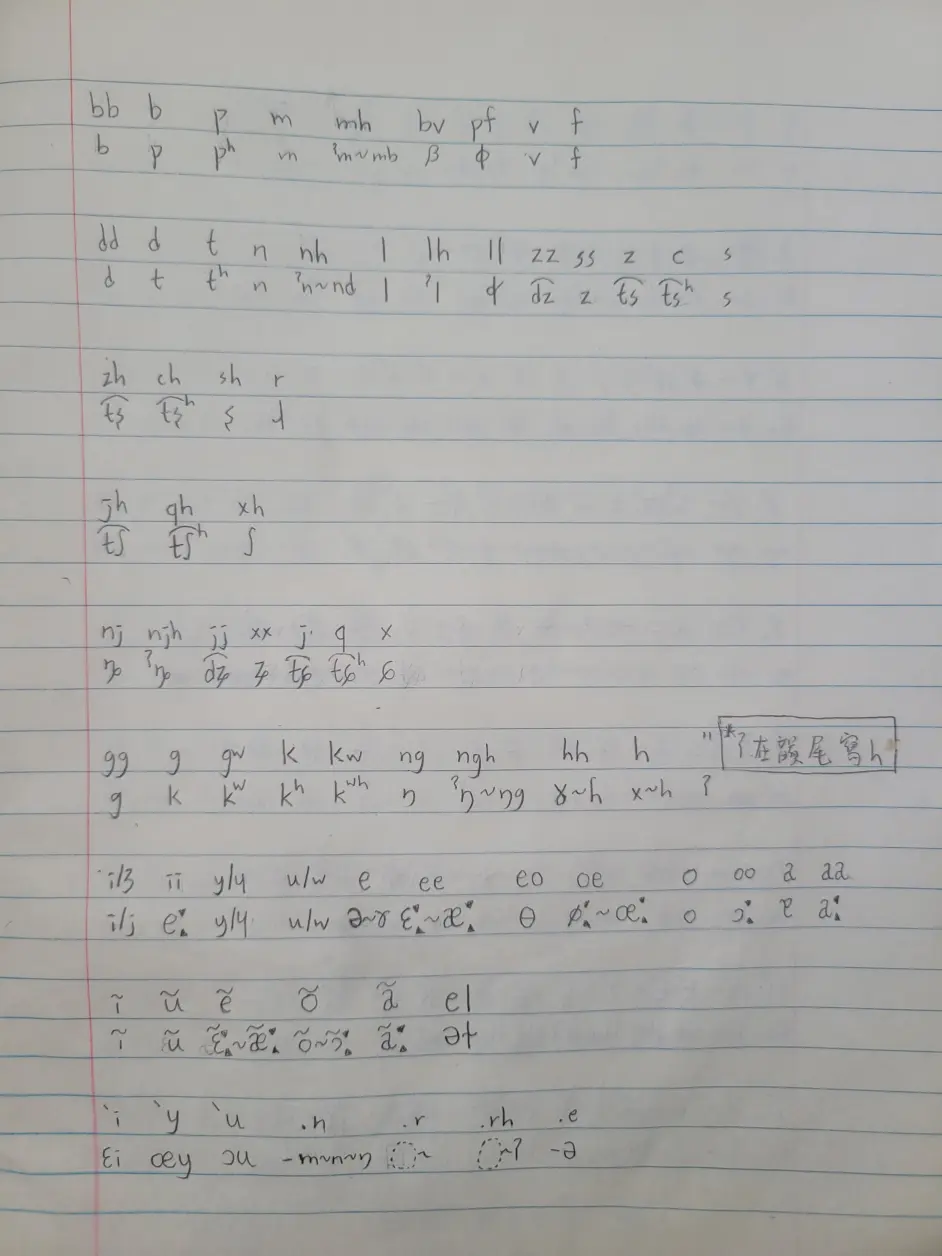 bb b p m mh bv pf v f
b p pʰ m ˀm~mb β ɸ v f
dd d t n nh l lh ll zz ss z c s
d t tʰ n ˀn~nd l ˀl d͡z z t͡s t͡sʰ s
zh ch sh r
t͡ʂ t͡ʂʰ ʂ ɻ
jh qh xh
t͡ʃ t͡ʃʰ ʃ
nj njh jj xx j q x
ȵ ˀȵ d͡ʑ ʑ t͡ɕ t͡ɕʰ ɕ
gg g gw k kw ng ngh hh h " *ʔ在韻尾寫h
g k kʷ kʰ kʷʰ ŋ ˀŋ~ŋg ɣ~ɦ x~h ʔ
i/ʒ ii y/ɥ u/w e ee eo oe o oo a aa
i/j eː y/ɥ u/w ə~ɤ ɛː~æː ɵ øː~œː o ɔː ɐ aː
ĩ ũ ẽ õ ã el
ĩ ũ ɛ̃ː~æ̃ː õ~ɔ̃ː ãː əɫ
`i `y `u .n .r .rh .e
ɛi œy ɔu -m~n~ŋ ◌~ ◌~ʔ -ə